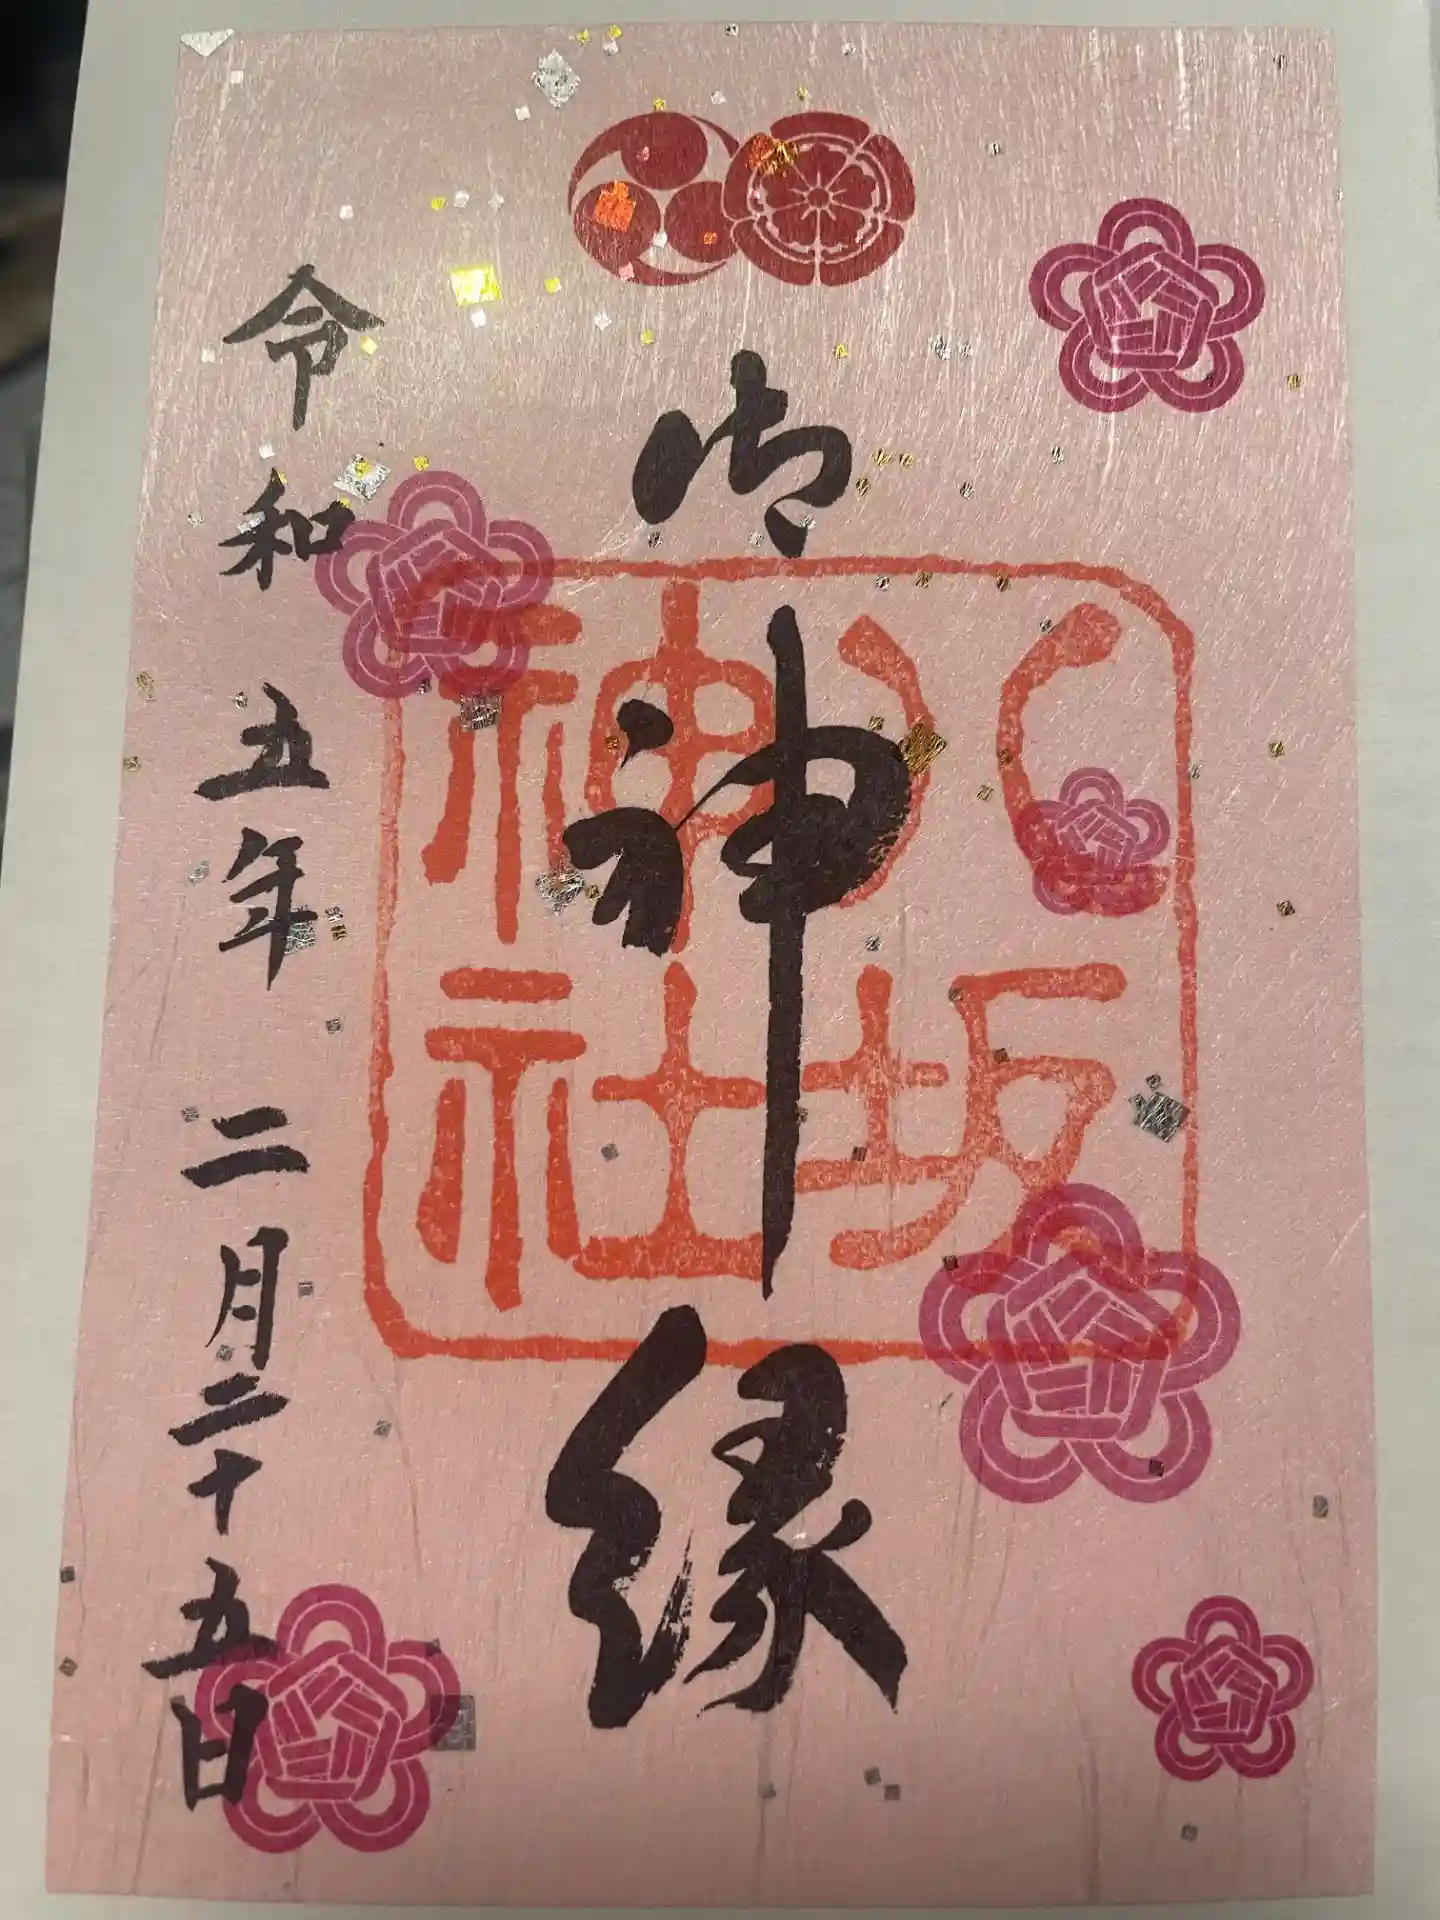 御神縁
八坂
神社
令和五年二月二十五日